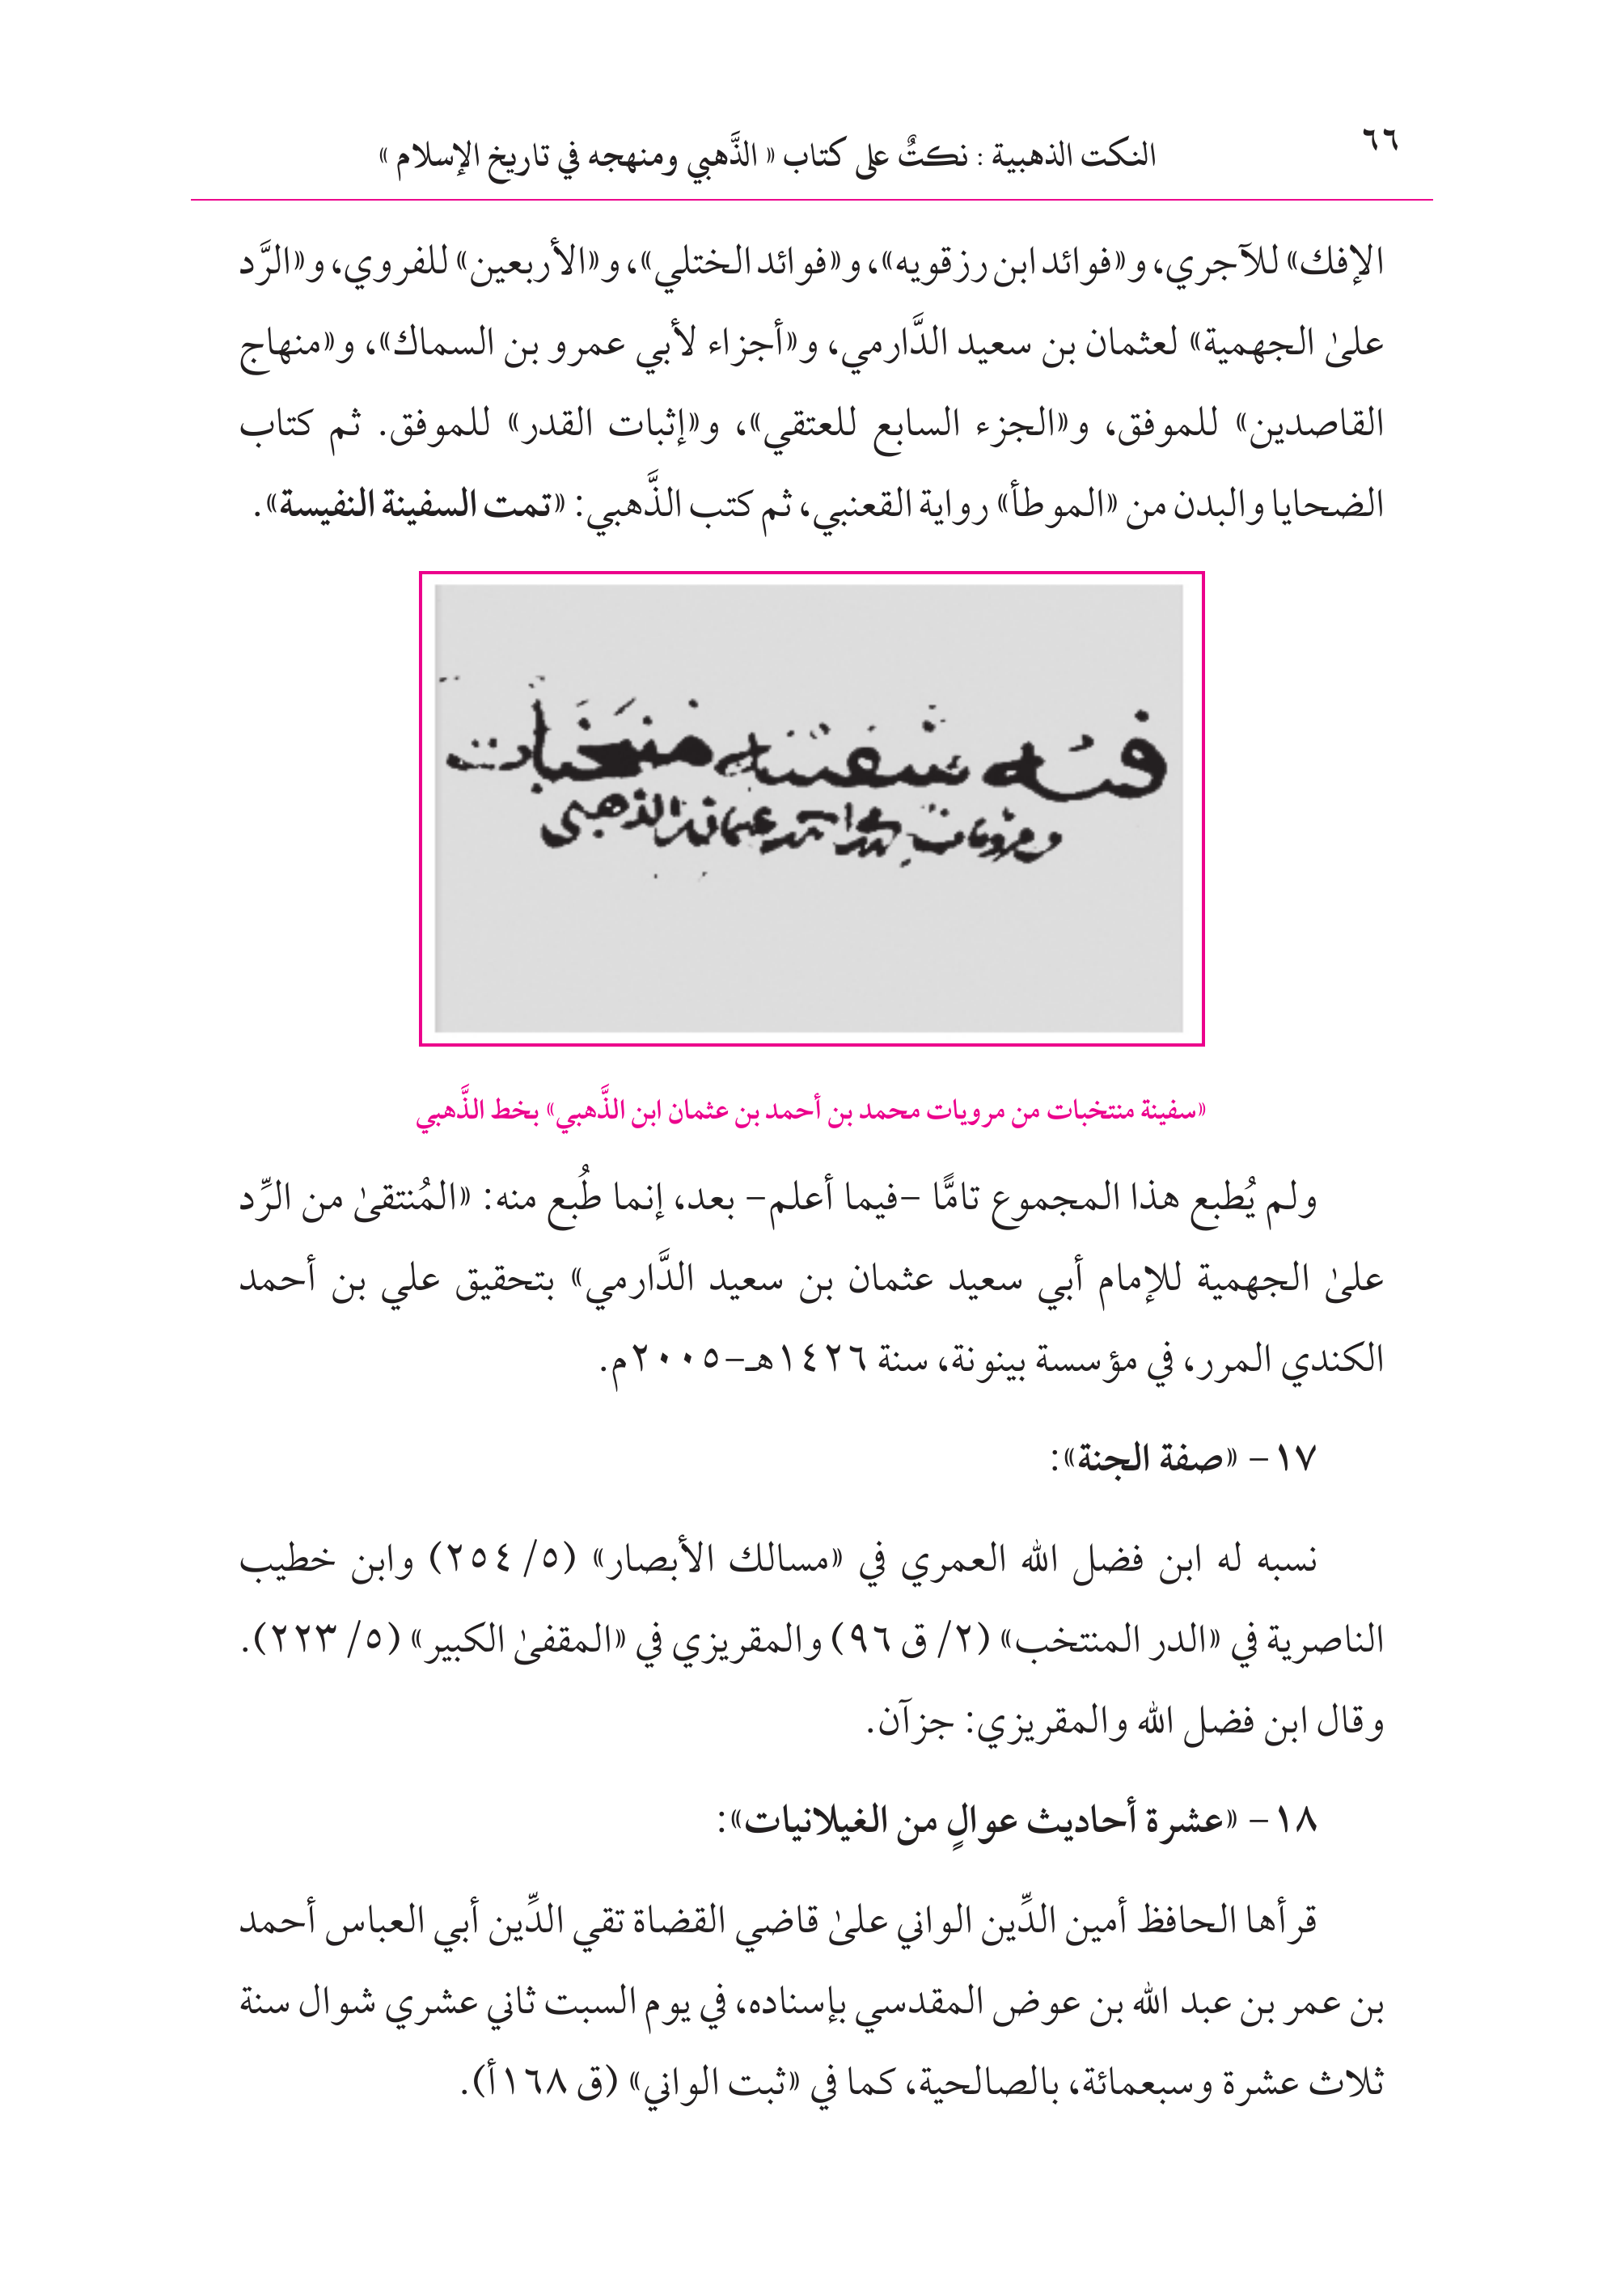 ٦٦
النكت الذهبية : نكتٌ على كتاب « الذَّهبي ومنهجه في تاريخ الإسلام »
الإفك» للآجري، و«فوائد ابن رزقويه»، و«فوائد الختلي»، و«الأربعين» للفروي، و«الرَّد
علىٰ الجهمية» لعثمان بن سعيد الدَّارمي، و«أجزاء لأبي عمرو بن السماك»، و«منهاج
القاصدين» للموفق، و«الجزء السابع للعتقي»، و«إثبات القدر» للموفق. ثم كتاب
الضحايا والبدن من «الموطأ» رواية القعنبي، ثم كتب الذَّهبي: «تمت السفينة النفيسة».
فيه سفينه منتخبات
محمد احمد عثمان الذهبي
«سفينة منتخبات من مرويات محمد بن أحمد بن عثمان ابن الذَّهبي» بخط الذَّهبي
ولم يُطبع هذا المجموع تامًّا -فيما أعلم- بعد، إنما طُبع منه: «المُنتقىٰ من الرِّد
علىٰ الجهمية للإمام أبي سعيد عثمان بن سعيد الدَّارمي» بتحقيق علي بن أحمد
الكندي المرر، في مؤسسة بينونة، سنة ١٤٢٦هـ-٢٠٠٥م.
١٧- «صفة الجنة»:
نسبه له ابن فضل الله العمري في «مسالك الأبصار» (٥/ ٢٥٤) وابن خطيب
الناصرية في «الدر المنتخب» (٢/ ق ٩٦) والمقريزي في «المقفىٰ الكبير» (٥/ ٢٢٣).
وقال ابن فضل الله والمقريزي: جزآن.
١٨- «عشرة أحاديث عوالٍ من الغيلانيات»:
قرأها الحافظ أمين الدِّين الواني علىٰ قاضي القضاة تقي الدِّين أبي العباس أحمد
بن عمر بن عبد الله بن عوض المقدسي بإسناده، في يوم السبت ثاني عشري شوال سنة
ثلاث عشرة وسبعمائة، بالصالحية، كما في «ثبت الواني» (ق ١٦٨أ).